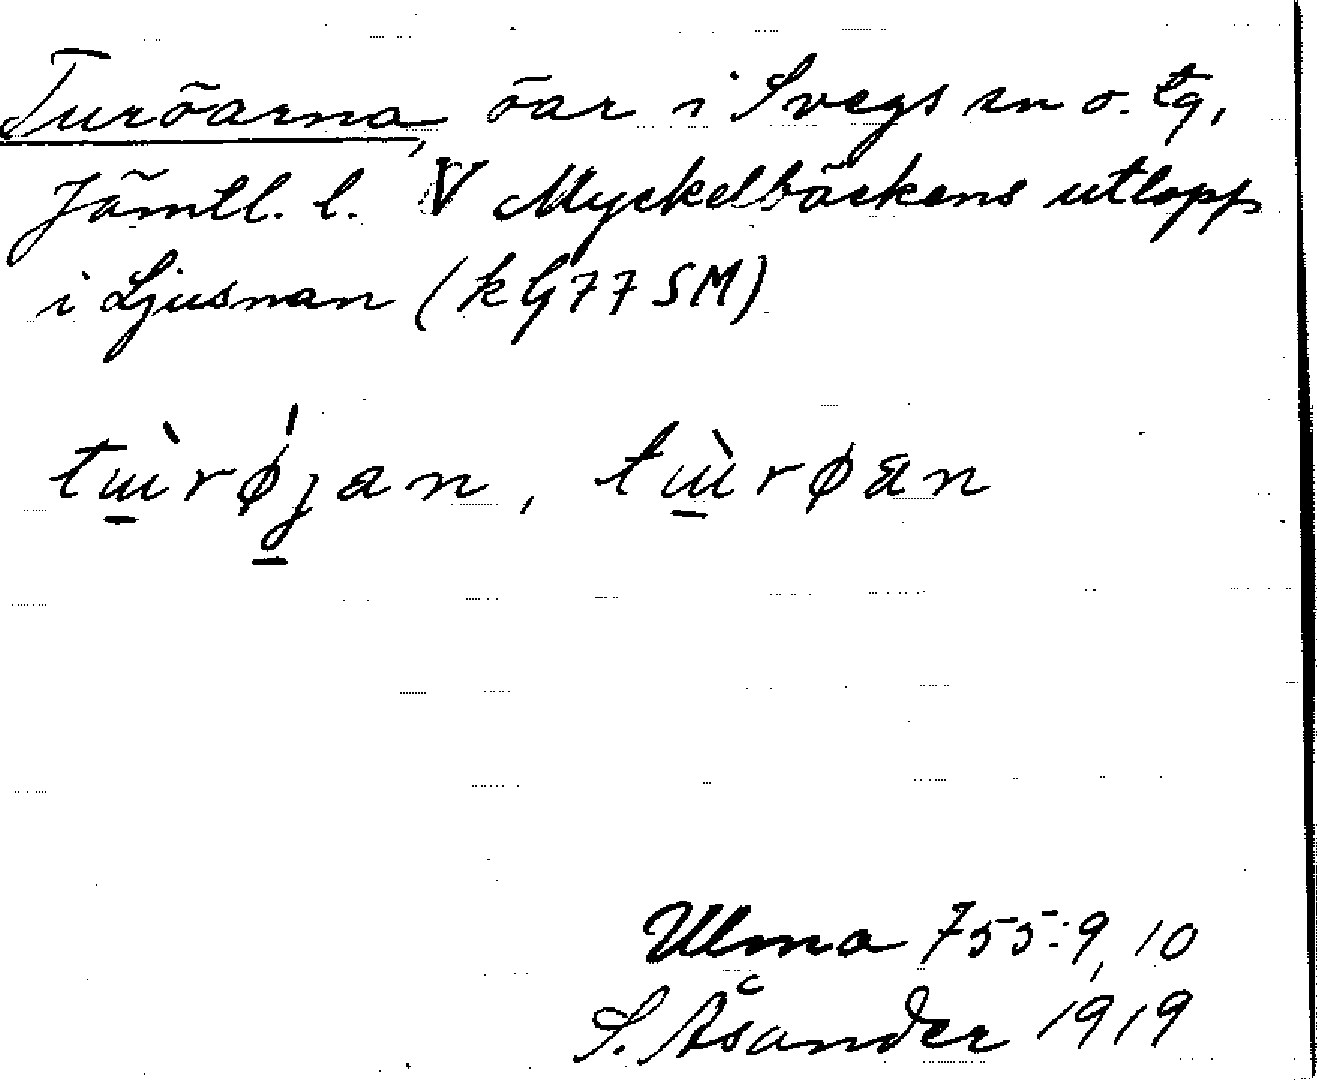 Turöarna, öar i Svegs sn o. tg,
Jämtl. l. V Myckelbäckens utlopp
i Ljusnan (kG77SM)
tɯ̱̀rǿj̱an, tɯ̱̀røan
Ulma 755:9, 10
S. Åsander 1919